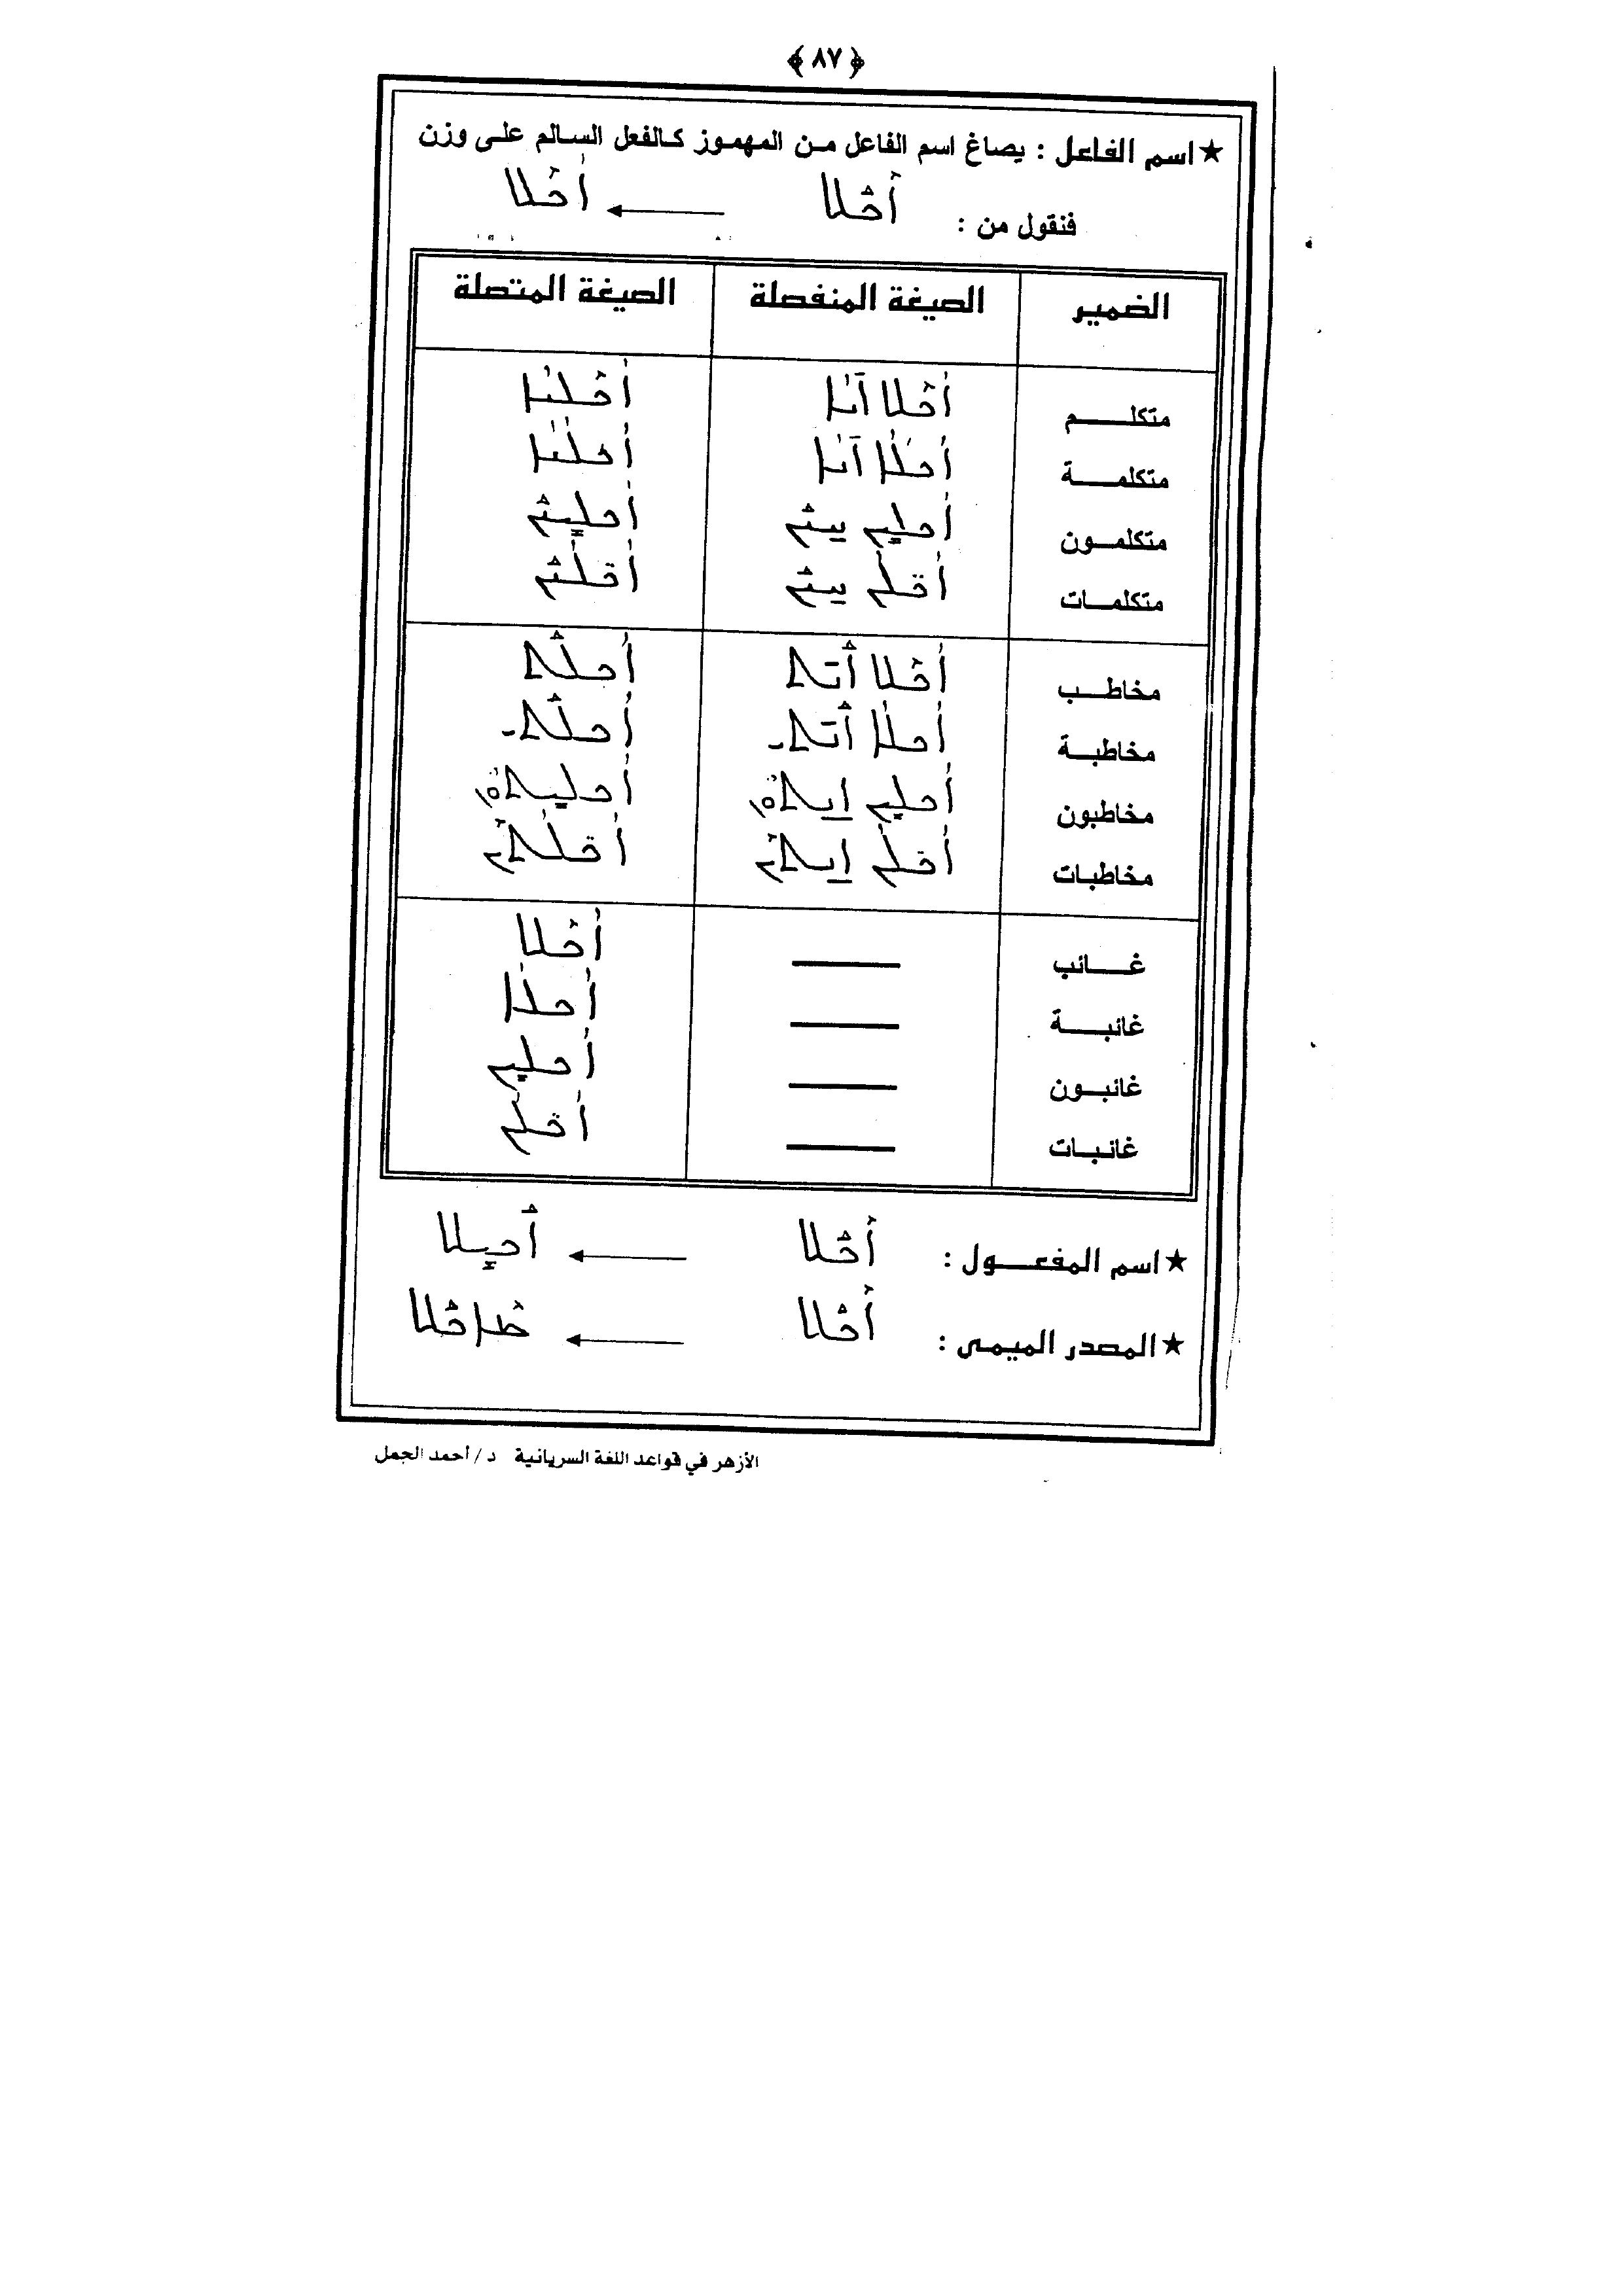 ﴿ ٨٧ ﴾
★ اسم الفاعل : يصاغ اسم الفاعل من المهموز كالفعل السالم على وزن
فنقول من : ܐܶܟܰܠ ← ܐܳܟܶܠ
الضمير الصيغة المنفصلة الصيغة المتصلة
متكلم ܐܳܟܶܠ ܐ̄ܢܳܐ ܐܳܟܶܠܢܳܐ
متكلمة ܐܳܟܠܳܐ ܐ̄ܢܳܐ ܐܳܟܠܳܢܳܐ
متكلمون ܐܳܟܠܺܝܢ ܚܢܰܢ ܐܳܟܠܺܝܢܰܢ
متكلمات ܐܳܟ̈ܠܳܢ ܚܢܰܢ ܐܳܟ̈ܠܳܢܰܢ
مخاطب ܐܳܟܶܠ ܐܰܢ̄ܬ ܐܳܟܠܰܬ
مخاطبة ܐܳܟܠܳܐ ܐܰܢ̄ܬܝ ܐܳܟܠܰܬܝ
مخاطبون ܐܳܟܠܺܝܢ ܐ̱ܢܬܘܢ ܐܳܟܠܺܝܬܘܢ
مخاطبات ܐܳܟ̈ܠܳܢ ܐ̱ܢܬܶܝܢ ܐܳܟ̈ܠܳܬܶܝܢ
غائب — ܐܳܟܶܠ
غائبة — ܐܳܟܠܳܐ
غائبون — ܐܳܟܠܺܝܢ
غائبات — ܐܳܟ̈ܠܳܢ
★ اسم المفعول : ܐܶܟܰܠ ← ܐܰܟܺܝܠ
★ المصدر الميمى : ܐܶܟܰܠ ← ܡܶܐܟܰܠ
الأزهر في قواعد اللغة السريانية د / أحمد الجمل